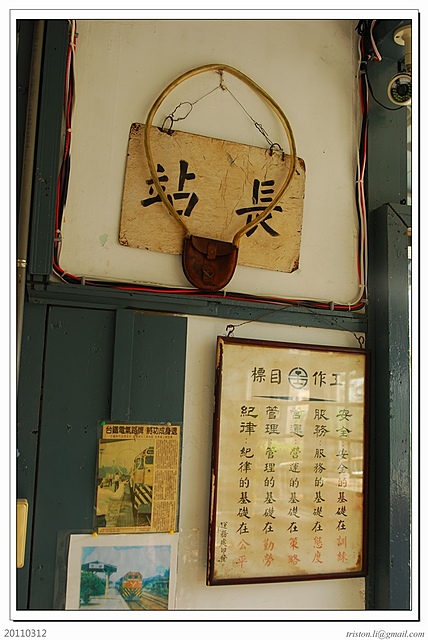 站長
工作目標
安全 安全的基礎在訓練
服務 服務的基礎在態度
營運 營運的基礎在策略
管理 管理的基礎在勤勞
紀律 紀律的基礎在公平
運務處印發
台鐵電氣路牌 將功成身退
20110312
triston.li@gmail.com